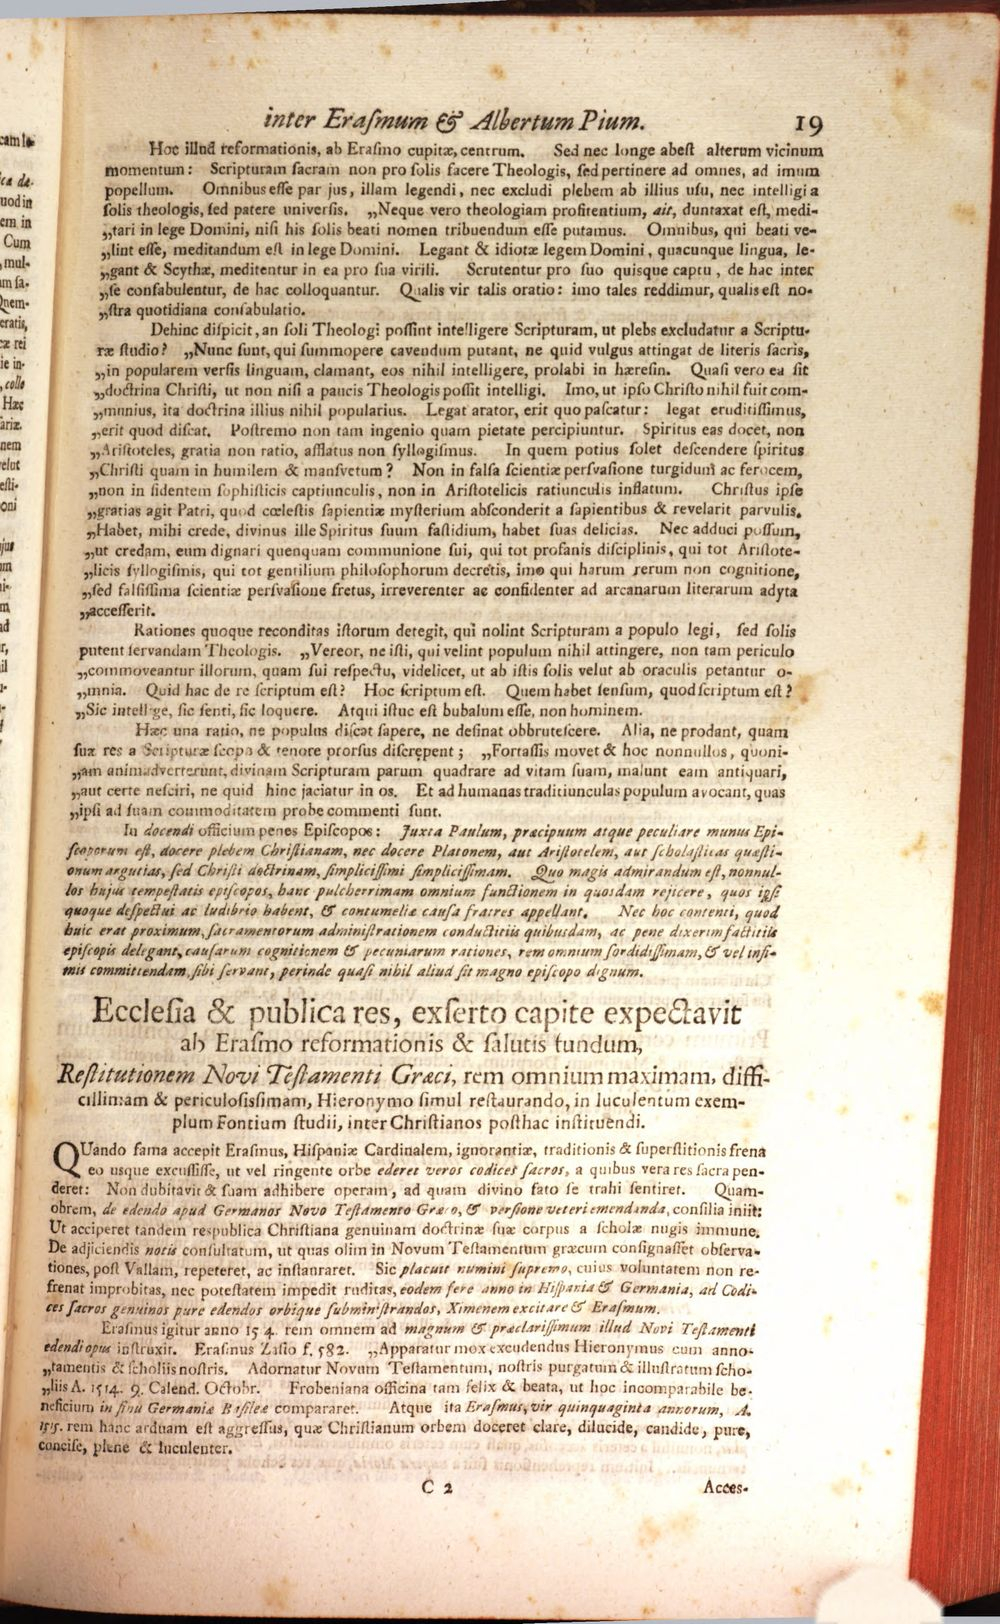 inter Eraſmum & Albertum Pium. 19
Hoc illud reformationis, ab Eraſmo cupitæ, centrum. Sed nec longe abeſt alterum vicinum
momentum: Scripturam ſacram non pro ſolis facere Theologis, ſed pertinere ad omnes, ad imum
popellum. Omnibus eſſe par jus, illam legendi, nec excludi plebem ab illius uſu, nec intelligi a
ſolis theologis, ſed patere univerſis. „Neque vero theologiam profitentium, ait, duntaxat eſt, medi-
„tari in lege Domini, niſi his ſolis beati nomen tribuendum eſſe putamus. Omnibus, qui beati ve-
„lint eſſe, meditandum eſt in lege Domini. Legant & idiotæ legem Domini, quacunque lingua, le-
„gant & Scythæ, meditentur in ea pro ſua virili. Scrutentur pro ſuo quisque captu, de hac inter
„ſe confabulentur, de hac colloquantur. Qualis vir talis oratio: imo tales reddimur, qualis eſt no-
„ſtra quotidiana confabulatio.
Dehinc diſpicit, an ſoli Theologi poſſint intelligere Scripturam, ut plebs excludatur a Scriptu-
ræ ſtudio? „Nunc ſunt, qui ſummopere cavendum putant, ne quid vulgus attingat de literis ſacris,
„in popularem verſis linguam, clamant, eos nihil intelligere, prolabi in hæreſin. Quaſi vero ea ſit
„doctrina Chriſti, ut non niſi a paucis Theologis poſſit intelligi. Imo, ut ipſo Chriſto nihil fuit com-
„munius, ita doctrina illius nihil popularius. Legat arator, erit quo paſcatur: legat eruditiſſimus,
„erit quod diſcat. Poſtremo non tam ingenio quam pietate percipiuntur. Spiritus eas docet, non
„Ariſtoteles, gratia non ratio, afflatus non ſyllogiſmus. In quem potius ſolet deſcendere ſpiritus
„Chriſti quam in humilem & manſvetum? Non in falſa ſcientiæ perſvaſione turgidum ac ferocem,
„non in fidentem ſophiſticis captiunculis, non in Ariſtotelicis ratiunculis inflatum. Chriſtus ipſe
„gratias agit Patri, quod cœleſtis ſapientiæ myſterium abſconderit a ſapientibus & revelarit parvulis.
„Habet, mihi crede, divinus ille Spiritus ſuum faſtidium, habet ſuas delicias. Nec adduci poſſum,
„ut credam, eum dignari quenquam communione ſui, qui tot profanis diſciplinis, qui tot Ariſtote-
„licis ſyllogiſmis, qui tot gentilium philoſophorum decretis, imo qui harum rerum non cognitione,
„ſed falſiſſima ſcientiæ perſvaſione fretus, irreverenter ac confidenter ad arcanarum literarum adyta
„acceſſerit.
Rationes quoque reconditas iſtorum detegit, qui nolint Scripturam a populo legi, ſed ſolis
putent ſervandam Theologis. „Vereor, ne iſti, qui velint populum nihil attingere, non tam periculo
„commoveantur illorum, quam ſui reſpectu, videlicet, ut ab iſtis ſolis velut ab oraculis petantur o-
„mnia. Quid hac de re ſcriptum eſt? Hoc ſcriptum eſt. Quem habet ſenſum, quod ſcriptum eſt?
„Sic intellige, ſic ſenti, ſic loquere. Atqui iſtuc eſt bubalum eſſe, non hominem.
Hæc una ratio, ne populus diſcat ſapere, ne deſinat obbruteſcere. Alia, ne prodant, quam
ſuæ res a Scripturæ ſcopo & tenore prorſus diſcrepent; „Fortaſſis movet & hoc nonnullos, quoni-
„am animadverterunt, divinam Scripturam parum quadrare ad vitam ſuam, malunt eam antiquari,
„aut certe neſciri, ne quid hinc jaciatur in os. Et ad humanas traditiunculas populum avocant, quas
„ipſi ad ſuam commoditatem probe commenti ſunt.
In docendi officium penes Epiſcopos: Juxta Paulum, præcipuum atque peculiare munus Epi-
ſcoporum eſt, docere plebem Chriſtianam, nec docere Platonem, aut Ariſtotelem, aut ſcholaſticas quæſti-
onum argutias, ſed Chriſti doctrinam, ſimpliciſſimi ſimpliciſſimam. Quo magis admirandum eſt, nonnul-
los hujus tempeſtatis epiſcopos, hanc pulcherrimam omnium functionem in quosdam rejicere, quos ipſi
quoque deſpectui ac ludibrio habent, & contumeliæ cauſa fratres appellant. Nec hoc contenti, quod
huic erat proximum, ſacramentorum adminiſtrationem conductitiis quibusdam, ac pene dixerim factitiis
epiſcopis delegant, cauſarum cognitionem & pecuniarum rationes, rem omnium ſordidiſſimam, & vel infi-
mis committendam, ſibi ſervant, perinde quaſi nihil aliud ſit magno epiſcopo dignum.
Eccleſia & publica res, exſerto capite expectavit
ab Eraſmo reformationis & ſalutis fundum,
Reſtitutionem Novi Teſtamenti Græci, rem omnium maximam, diffi-
cillimam & periculoſiſſimam, Hieronymo ſimul reſtaurando, in luculentum exem-
plum Fontium ſtudii, inter Chriſtianos poſthac inſtituendi.
QUando fama accepit Eraſmus, Hiſpaniæ Cardinalem, ignorantiæ, traditionis & ſuperſtitionis frena
eo usque excuſſiſſe, ut vel ringente orbe ederet veros codices ſacros, a quibus vera res ſacra pen-
deret: Non dubitavit & ſuam adhibere operam, ad quam divino fato ſe trahi ſentiret. Quam-
obrem, de edendo apud Germanos Novo Teſtamento Græco, & verſione veteri emendanda, conſilia iniit:
Ut acciperet tandem respublica Chriſtiana genuinam doctrinæ ſuæ corpus a ſcholæ nugis immune.
De adjiciendis notis conſultatum, ut quas olim in Novum Teſtamentum græcum conſignaſſet obſerva-
tiones, poſt Vallam, repeteret, ac inſtauraret. Sic placuit numini ſupremo, cuius voluntatem non re-
frenat improbitas, nec poteſtatem impedit ruditas, eodem fere anno in Hiſpania & Germania, ad Codi-
ces ſacros genuinos pure edendos orbique ſubminiſtrandos, Ximenem excitare & Eraſmum.
Eraſmus igitur anno 15 4. rem omnem ad magnum & præclariſſimum illud Novi Teſtamenti
edendi opus inſtruxit. Eraſmus Zaſio f. 582. „Apparatur mox excudendus Hieronymus cum anno-
„tamentis & ſcholiis noſtris. Adornatur Novum Teſtamentum, noſtris purgatum & illuſtratum ſcho-
„liis A. 1514. 9. Calend. Octobr. Frobeniana officina tam felix & beata, ut hoc incomparabile be-
neficium in ſinu Germaniæ Baſileæ compararet. Atque ita Eraſmus, vir quinquaginta annorum, A.
1515. rem hanc arduam eſt aggreſſus, quæ Chriſtianum orbem doceret clare, dilucide, candide, pure,
conciſe, plene & luculenter.
C 2 Acces-